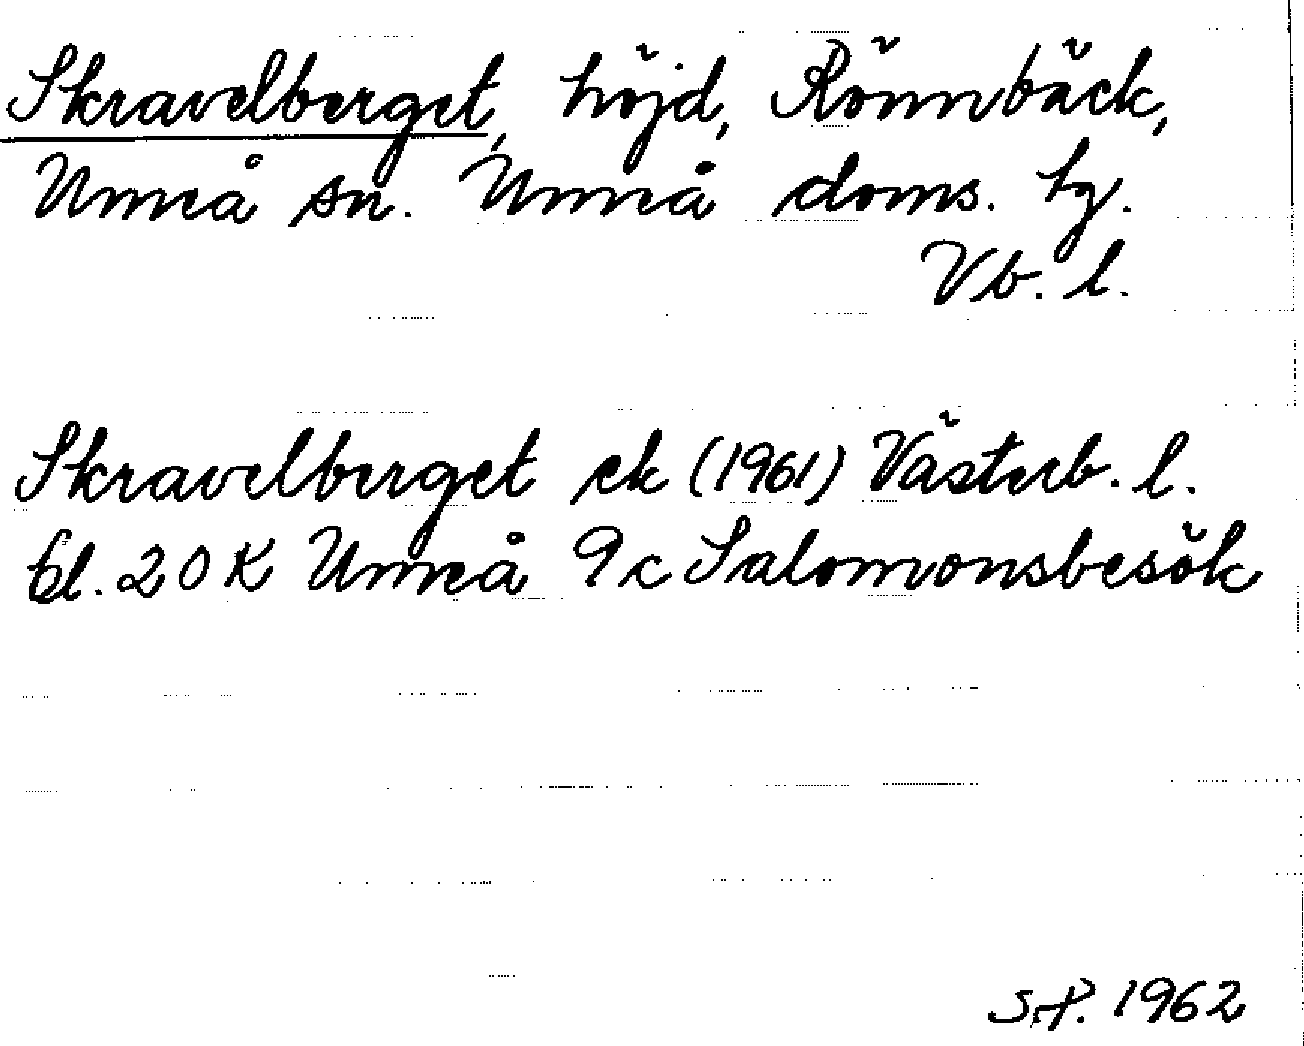 Skravelberget, höjd, Rönnbäck,
Umeå sn. Umeå doms. hg.
Vb. l.
Skravelberget ek (1961) Västerb. l.
bl. 20 K Umeå 9c Salomonsbesök
1962